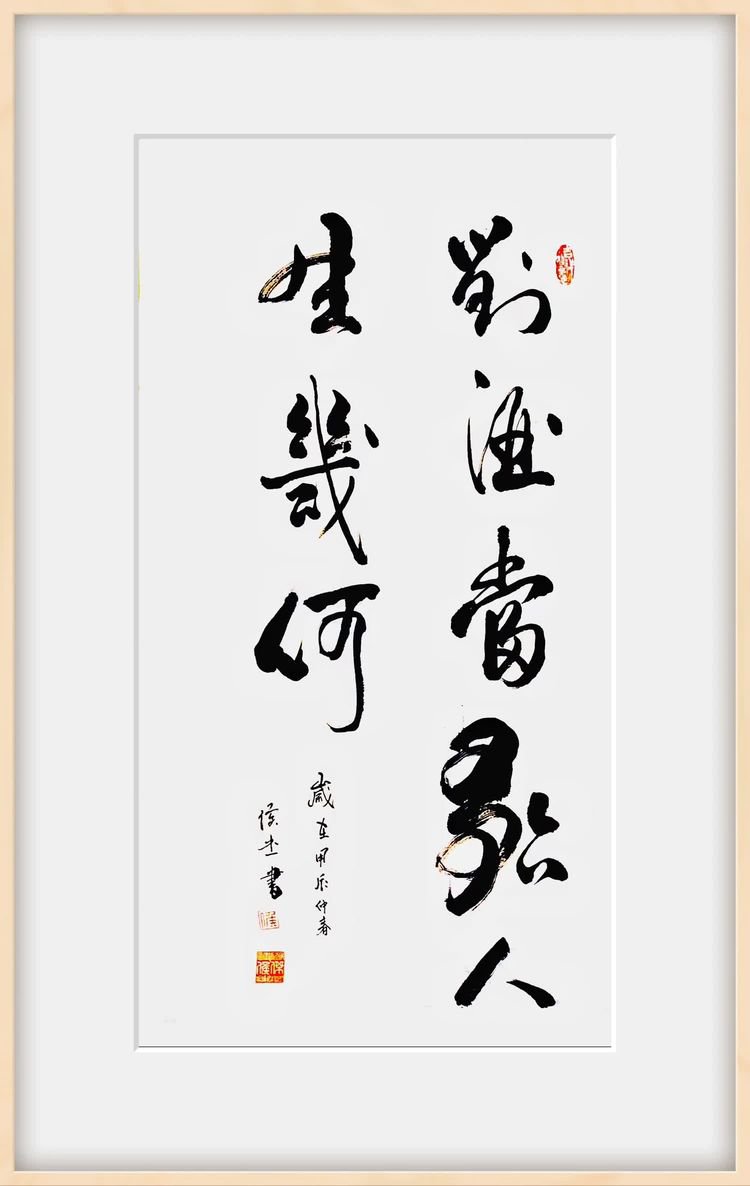 對酒當歌人
生幾何
歲在甲辰仲春
侯杰書